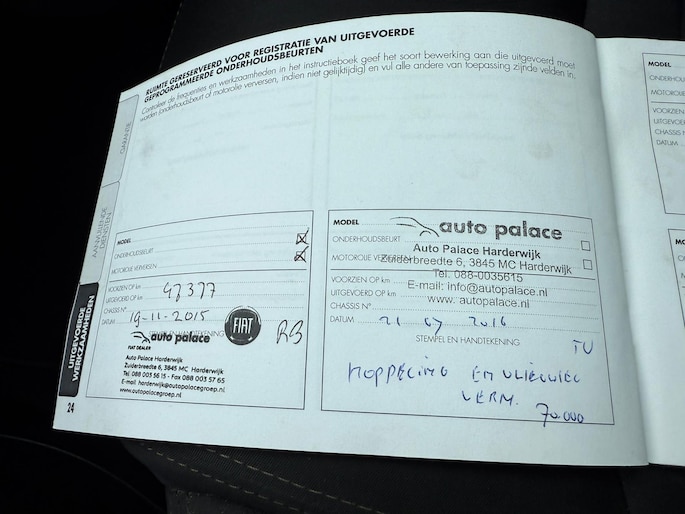 RUIMTE GERESERVEERD VOOR REGISTRATIE VAN UITGEVOERDE
GEPROGRAMMEERDE ONDERHOUDSBEURTEN
Controleer de frequenties en werkzaamheden in het instructieboek geef het soort bewerking aan die uitgevoerd moet
worden (onderhoudsbeurt of motorolie verversen, indien niet gelijktijdig) en vul alle andere van toepassing zijnde velden in.
GARANTIE
AANVULLENDE
DIENSTEN
UITGEVOERDE
WERKZAAMHEDEN
MODEL
ONDERHOUDSBEURT
MOTOROLIE VERVERSEN
VOORZIEN OP km
UITGEVOERD OP km 47377
CHASSIS N°
DATUM 19-11-2015
STEMPEL EN HANDTEKENING
auto palace
FIAT DEALER
FIAT
RB
Auto Palace Harderwijk
Zuiderbreedte 6, 3845 MC Harderwijk
Tel. 088 003 56 15 - Fax 088 003 57 65
E-mail harderwijk@autopalacegroep.nl
www.autopalacegroep.nl
24
MODEL
auto palace
ONDERHOUDSBEURT
Auto Palace Harderwijk
MOTOROLIE VERVERSEN
Zuiderbreedte 6, 3845 MC Harderwijk
Tel. 088-0035615
VOORZIEN OP km
E-mail: info@autopalace.nl
UITGEVOERD OP km
www.autopalace.nl
CHASSIS N°
DATUM 21 07 2016
STEMPEL EN HANDTEKENING
TU
KOPPELING EN VLIEGWIEL
VERN.
70.000
MODEL
MOTOROLIE
VOORZIEN
CHASSIS N
DATUM
MODEL
MOTOROL
VOORZIE
CHASSIS
DATUM